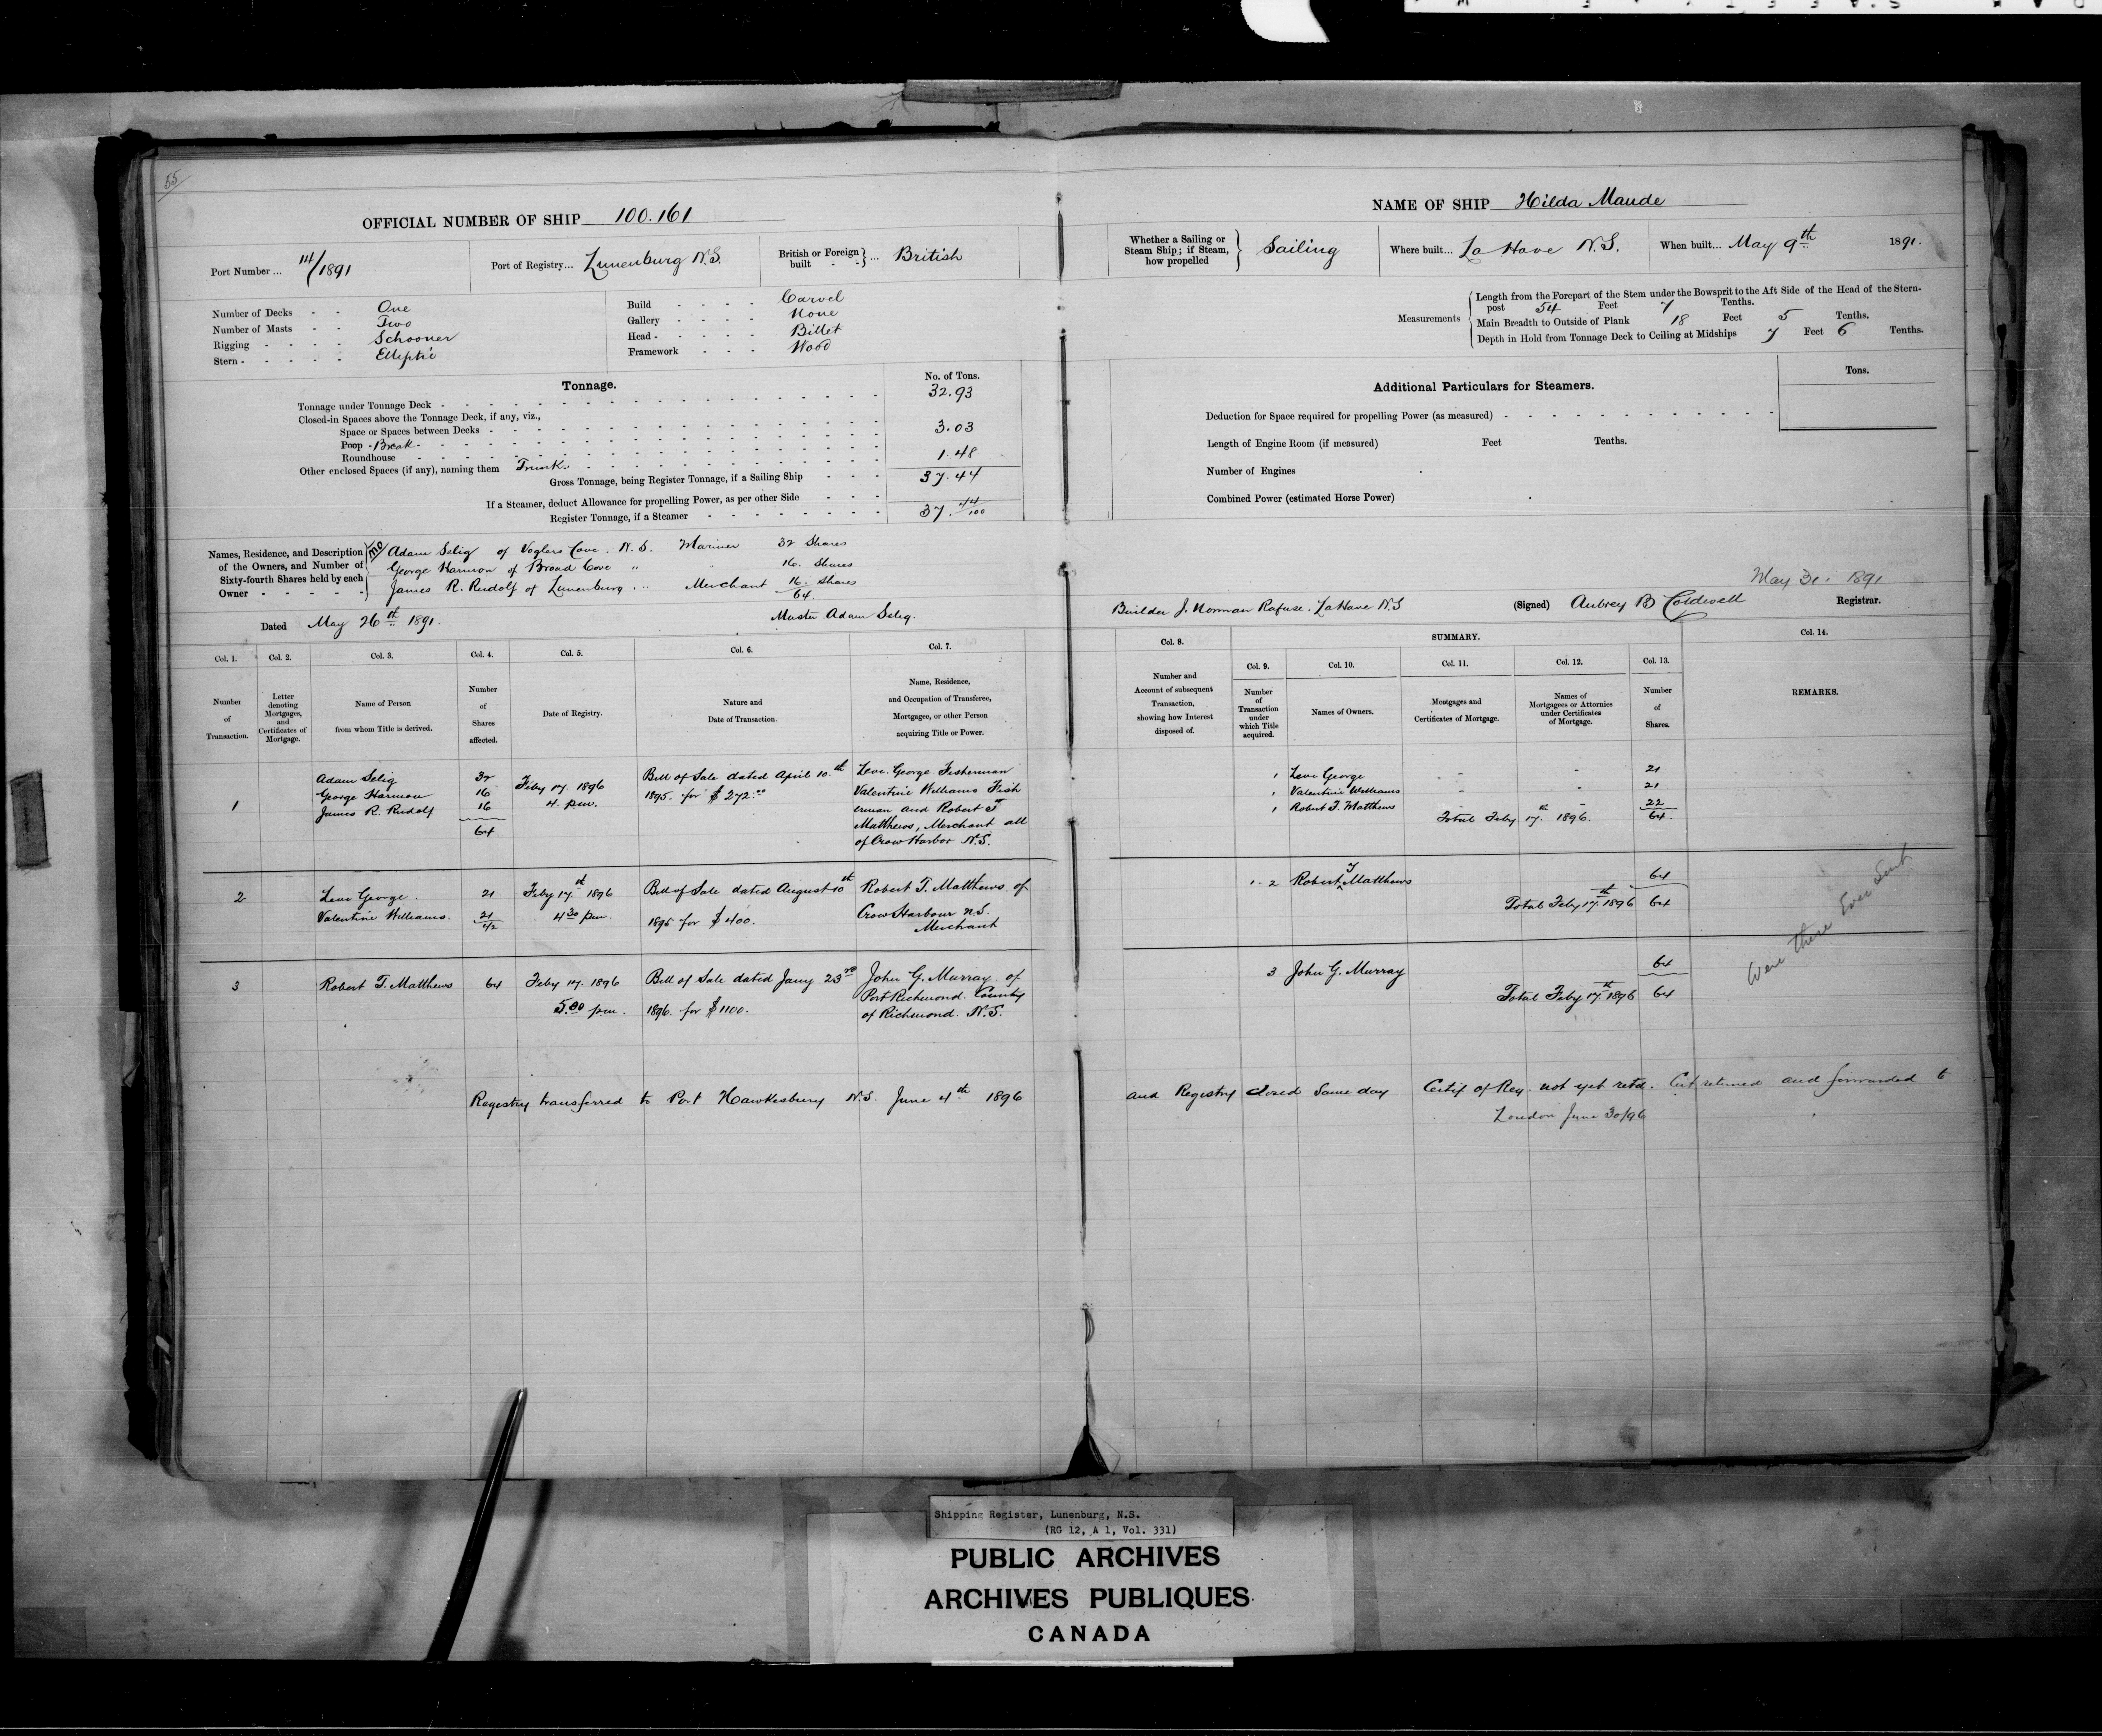 55
OFFICIAL NUMBER OF SHIP 100.161
Port Number ... 14/1891
Port of Registry... Lunenburg N.S.
British or Foreign built - - } ... British
Number of Decks - - One
Number of Masts - - Two
Rigging - - - - Schooner
Stern - - - - - Elliptic
Build - - - - Carvel
Gallery - - - - None
Head - - - - - Billet
Framework - - - Wood
Tonnage.
No. of Tons.
Tonnage under Tonnage Deck - 32.93
Closed-in Spaces above the Tonnage Deck, if any, viz.,
Space or Spaces between Decks - 3.03
Poop - Break -
Roundhouse 1.48
Other enclosed Spaces (if any), naming them Trunk
Gross Tonnage, being Register Tonnage, if a Sailing Ship 37.44
If a Steamer, deduct Allowance for propelling Power, as per other Side
Register Tonnage, if a Steamer 37.44/100
Names, Residence, and Description of the Owners, and Number of Sixty-fourth Shares held by each Owner
Adam Selig of Voglers Cove. N.S. Mariner 32 Shares
George Harmon of Broad Cove " " 16. Shares
James R. Rudolf of Lunenburg " Merchant 16. Shares
64.
Dated May 26th 1891.
Master Adam Selig.
Col. 1. Col. 2. Col. 3. Col. 4. Col. 5. Col. 6. Col. 7.
Number of Transaction.
Letter denoting Mortgages, and Certificates of Mortgage.
Name of Person from whom Title is derived.
Number of Shares affected.
Date of Registry.
Nature and Date of Transaction.
Name, Residence, and Occupation of Transferee, Mortgagee, or other Person acquiring Title or Power.
Adam Selig 32 Feby 17. 1896 Bill of Sale dated April 10.th Levi George Fisherman
George Harmon 16 4. p.m. 1895. for $272.00 Valentine Williams Fish
1 James R. Rudolf 16 erman and Robert T
64 Matthews, Merchant all
of Crow Harbor N.S.
2 Levi George. 21 Feby 17th 1896 Bill of Sale dated August 10th Robert T. Matthews of
Valentine Williams. 21 4 30 p.m. 1895 for $400. Crow Harbour N.S.
42 Merchant
3 Robert T. Matthews 64 Feby 17. 1896 Bill of Sale dated Jany 23rd John G. Murray of
5.00 p.m. 1896. for $1100. Port Richmond. County
of Richmond. N.S.
Registry transferred to Port Hawkesbury N.S. June 4th 1896
NAME OF SHIP Hilda Maude
Whether a Sailing or Steam Ship; if Steam, how propelled } Sailing
Where built... La Have N.S.
When built... May 9th 1891.
Measurements
Length from the Forepart of the Stem under the Bowsprit to the Aft Side of the Head of the Stern-
post 54 Feet 7 Tenths.
Main Breadth to Outside of Plank 18 Feet 5 Tenths.
Depth in Hold from Tonnage Deck to Ceiling at Midships 7 Feet 6 Tenths.
Additional Particulars for Steamers.
Tons.
Deduction for Space required for propelling Power (as measured)
Length of Engine Room (if measured) Feet Tenths.
Number of Engines
Combined Power (estimated Horse Power)
May 31. 1891
Builder J. Norman Rafuse. LaHave N.S
(Signed) Aubrey B Caldwell Registrar.
SUMMARY.
Col. 8. Col. 9. Col. 10. Col. 11. Col. 12. Col. 13. Col. 14.
Number and Account of subsequent Transaction, showing how Interest disposed of.
Number of Transaction under which Title acquired.
Names of Owners.
Mortgages and Certificates of Mortgage.
Names of Mortgagees or Attornies under Certificates of Mortgage.
Number of Shares.
REMARKS.
1 Levi George - - 21
1 Valentine Williams - - 21
1 Robert T. Matthews - - 22
Total Feby 17th 1896. 64.
1-2 Robert T Matthews 64
Total Feby 17th 1896 64
3 John G. Murray 64
Total Feby 17th 1896 64
Were these Ever Sent
and Registry closed same day Certif of Reg. not yet retd. Cert returned and forwarded to
London June 30/96
Shipping Register, Lunenburg, N.S.
(RG 12, A 1, Vol. 331)
PUBLIC ARCHIVES
ARCHIVES PUBLIQUES
CANADA